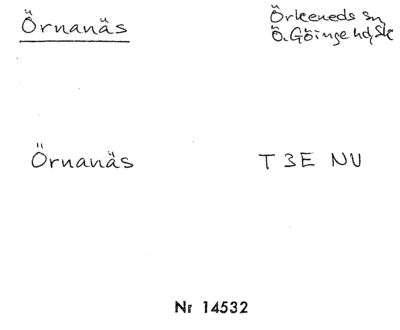 Örnanäs
Örkeneds sn
Ö. Göinge hd, Sk
Örnanäs
T 3E NV
Nr 14532